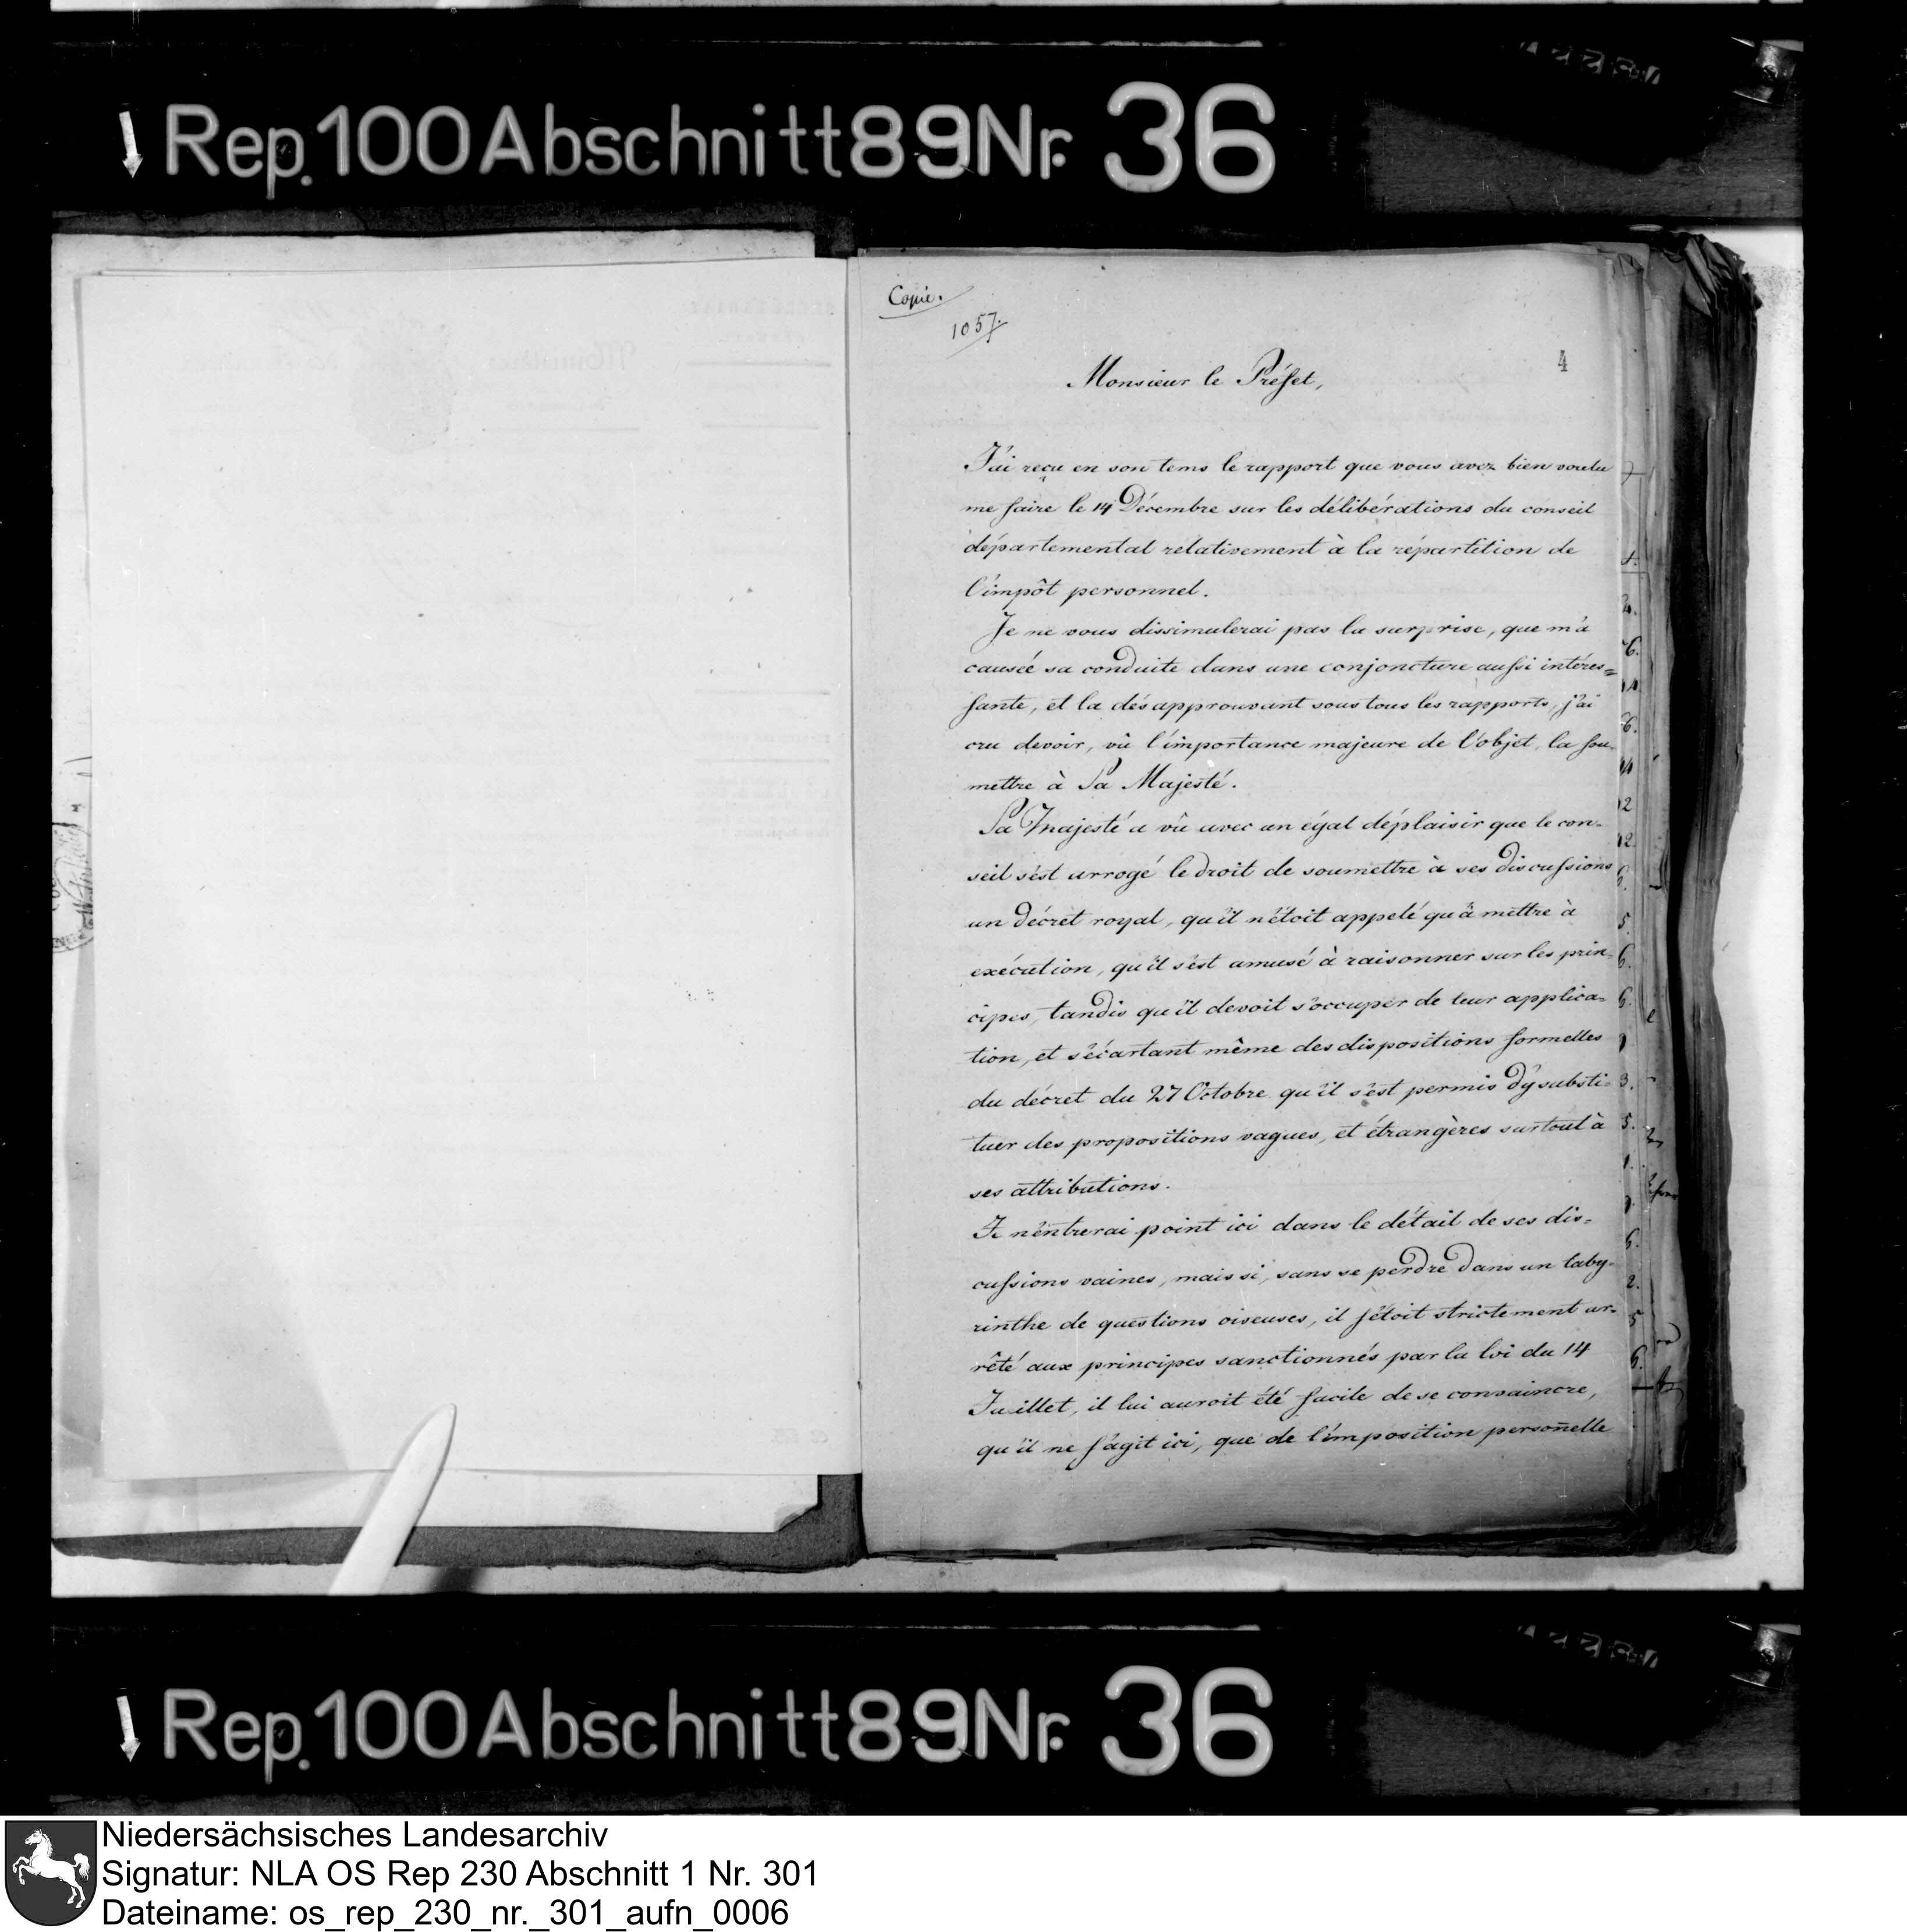 Rep. 100 Abschnitt 89 Nr. 36
Copie.
1057.
4
Monsieur le Préfet,
J'ai reçu en son tems le rapport que vous avez bien voulu
me faire le 14 Décembre sur les délibérations du conseil
départemental rélativement à la répartition de
l'impôt personnel.
Je ne vous dissimulerai pas la surprise, que m'a
causée sa conduite dans une conjoncture aussi intéres=
sante, et la désapprouvant sous tous les rapports, j'ai
cru devoir, vû l'importance majeure de l'objet, la sou-
mettre à Sa Majesté.
Sa Majesté a vû avec un égal déplaisir que le con-
seil s'est arrogé le droit de soumettre à ses discussions
un décret royal, qu'il n'étoit appelé qu'à mettre à
exécution, qu'il s'est amusé à raisonner sur les prin-
cipes, tandis qu'il devoit s'occuper de leur applica-
tion, et s'écartant même des dispositions formelles
du décret du 27 Octobre qu'il s'est permis d'y substi-
tuer des propositions vagues, et étrangères surtout à
ses attributions.
Je n'entrerai point ici dans le détail de ses dis-
cussions vaines, mais si, sans se perdre dans un laby-
rinthe de questions oiseuses, il s'étoit strictement ar-
rêté aux principes sanctionnés par la loi du 14
Juillet, il lui auroit été facile de se convaincre,
qu'il ne s'agit ici, que de l'imposition personelle
Rep. 100 Abschnitt 89 Nr. 36
Niedersächsisches Landesarchiv
Signatur: NLA OS Rep 230 Abschnitt 1 Nr. 301
Dateiname: os_rep_230_nr._301_aufn_0006